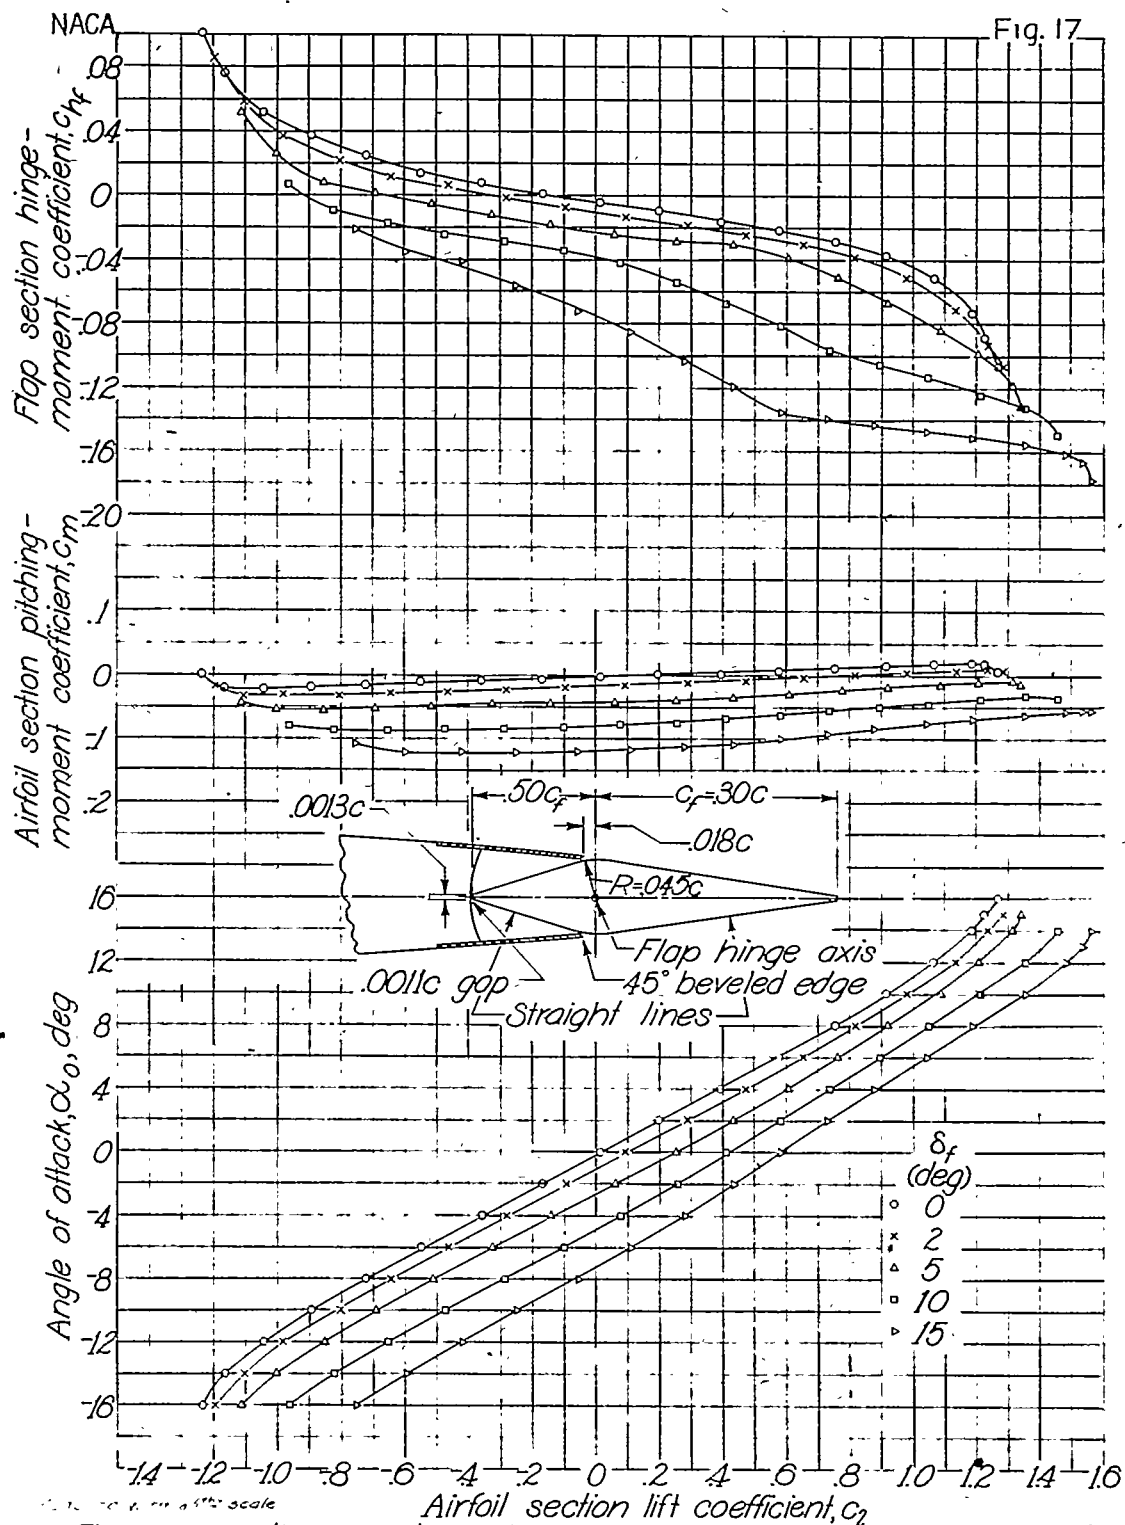 NACA
Fig. 17
Flap section hinge-
moment coefficient, c_hf
.08
.04
0
-.04
-.08
-.12
-.16
-.20
Airfoil section pitching-
moment coefficient, c_m
.1
0
-.1
-.2
.50c_f
c_f=.30c
.0013c
.018c
R=.045c
Flap hinge axis
.0011c gap
45° beveled edge
Straight lines
Angle of attack, α_0, deg
16
12
8
4
0
-4
-8
-12
-16
δ_f
(deg)
○ 0
× 2
△ 5
□ 10
▷ 15
-1.4 -1.2 -1.0 -.8 -.6 -.4 -.2 0 .2 .4 .6 .8 1.0 1.2 1.4 1.6
scale
Airfoil section lift coefficient, c_l